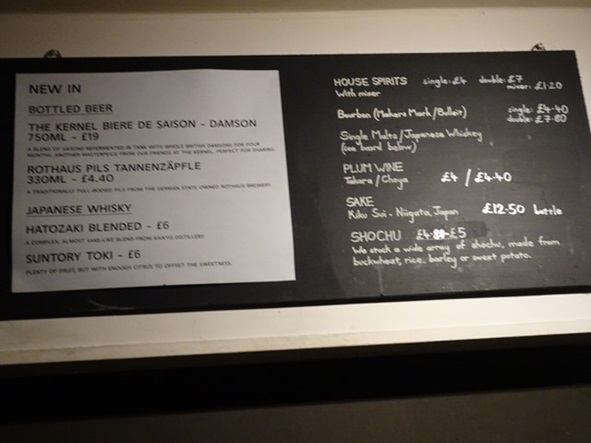 NEW IN
BOTTLED BEER
THE KERNEL BIERE DE SAISON - DAMSON
750ML - £19
A BLEND OF SAISONS REFERMENTED IN TANK WITH WHOLE BRITISH DAMSONS FOR FOUR
MONTHS. ANOTHER MASTERPIECE FROM OUR FRIENDS AT THE KERNEL. PERFECT FOR SHARING.
ROTHAUS PILS TANNENZÄPFLE
330ML - £4.40
A TRADITIONALLY FULL-BODIED PILS FROM THE GERMAN STATE OWNED ROTHAUS BREWERY
JAPANESE WHISKY
HATOZAKI BLENDED - £6
A COMPLEX, ALMOST SAKE-LIKE BLEND FROM KAIKYO DISTILLERY
SUNTORY TOKI - £6
PLENTY OF FRUIT, BUT WITH ENOUGH CITRUS TO OFFSET THE SWEETNESS.
HOUSE SPIRITS single: £4 double: £7
With mixer mixer: £1.20
Bourbon (Makers Mark/Bulleit) single: £4.40
double: £7.80
Single Malts/Japanese Whiskey
(see board below)
PLUM WINE
Takara/Choya £4 / £4.40
SAKE
Kiku Sui - Niigata, Japan £12.50 bottle
SHOCHU - £5
We stock a wide array of shochu, made from
buckwheat, rice, barley or sweet potato.